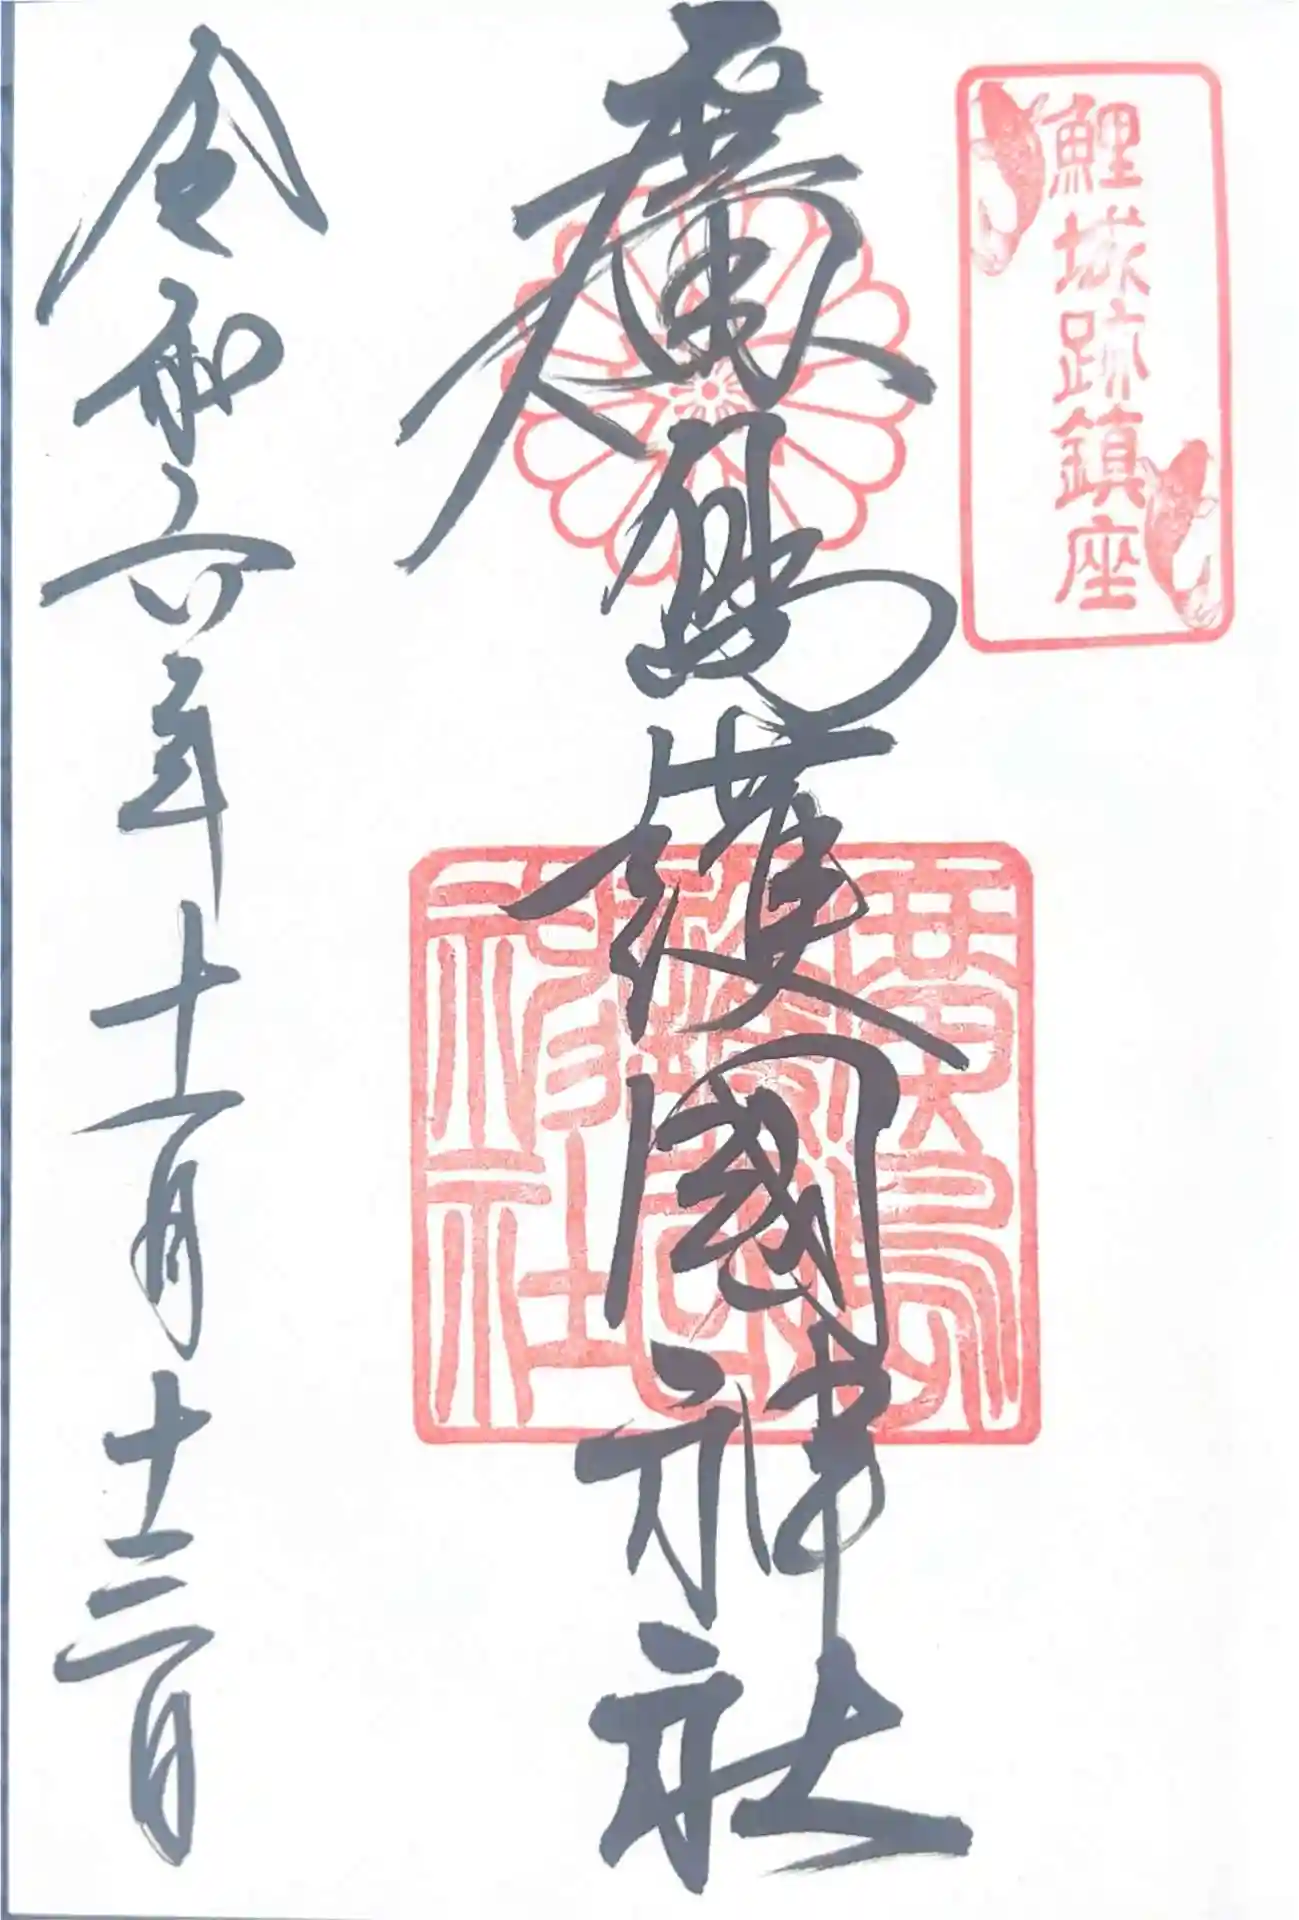 鯉城跡鎮座
廣島護國神社
廣島護國神社
令和六年十一月十三日